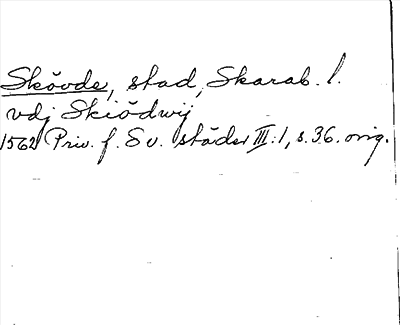 Skövde, stad, Skarab. l.
vdj Skiödwij
1562 Priv. f. Sv. städer III:1, s.36. orig.